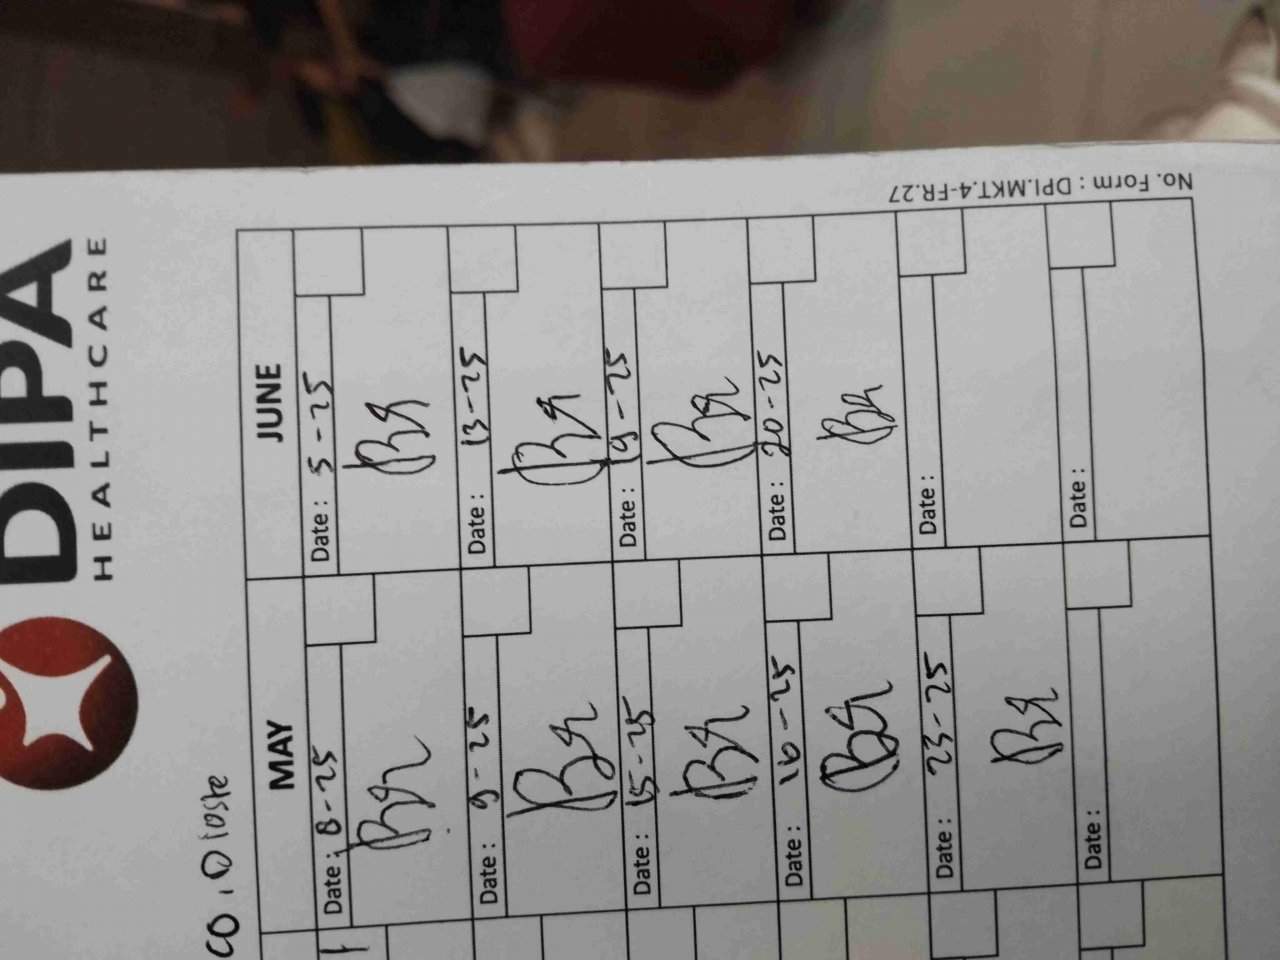 DIPA
HEALTHCARE
MAY
JUNE
Date : 8-25
Date : 5-25
Date : 9-25
Date : 13-25
Date : 15-25
Date : 19-25
Date : 16-25
Date : 20-25
Date : 23-25
Date :
Date :
Date :
No. Form : DPI.MKT.4-FR.27